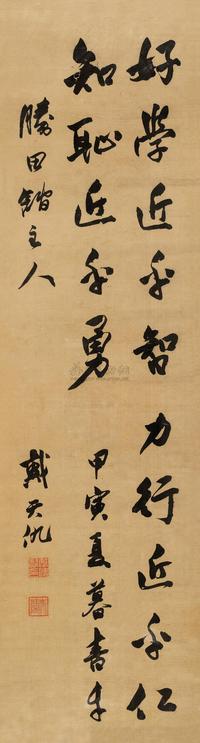 好學近乎智力行近乎仁
知恥近乎勇
甲寅夏暮書
勝田舘主人
戴天仇